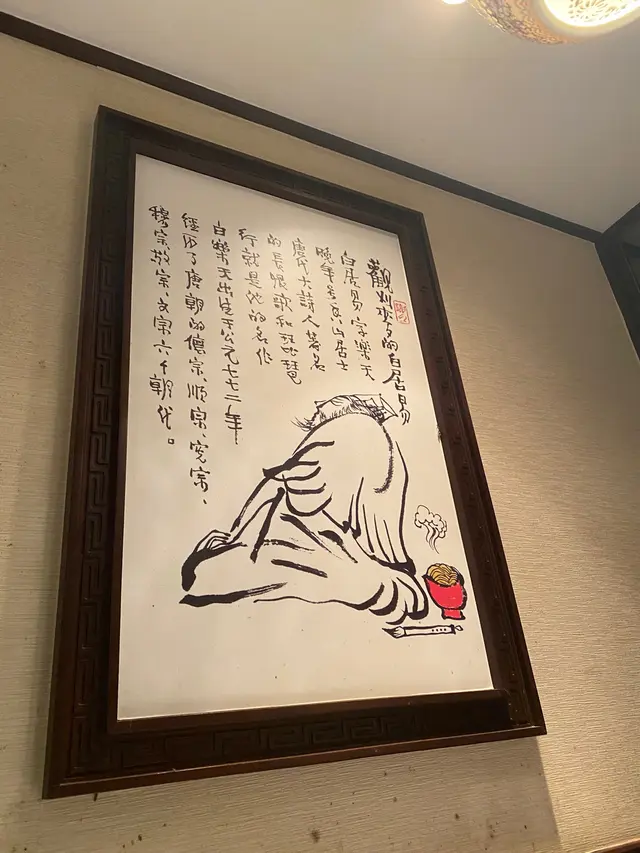 觀刈麥的白居易
白居易字樂天
晚年号香山居士
唐代大詩人著名
的長恨歌和琵琶
行就是他的名作
白樂天出生于公元七七二年
經历了唐朝的德宗、順宗、宪宗、
穆宗、敬宗、文宗六个朝代。